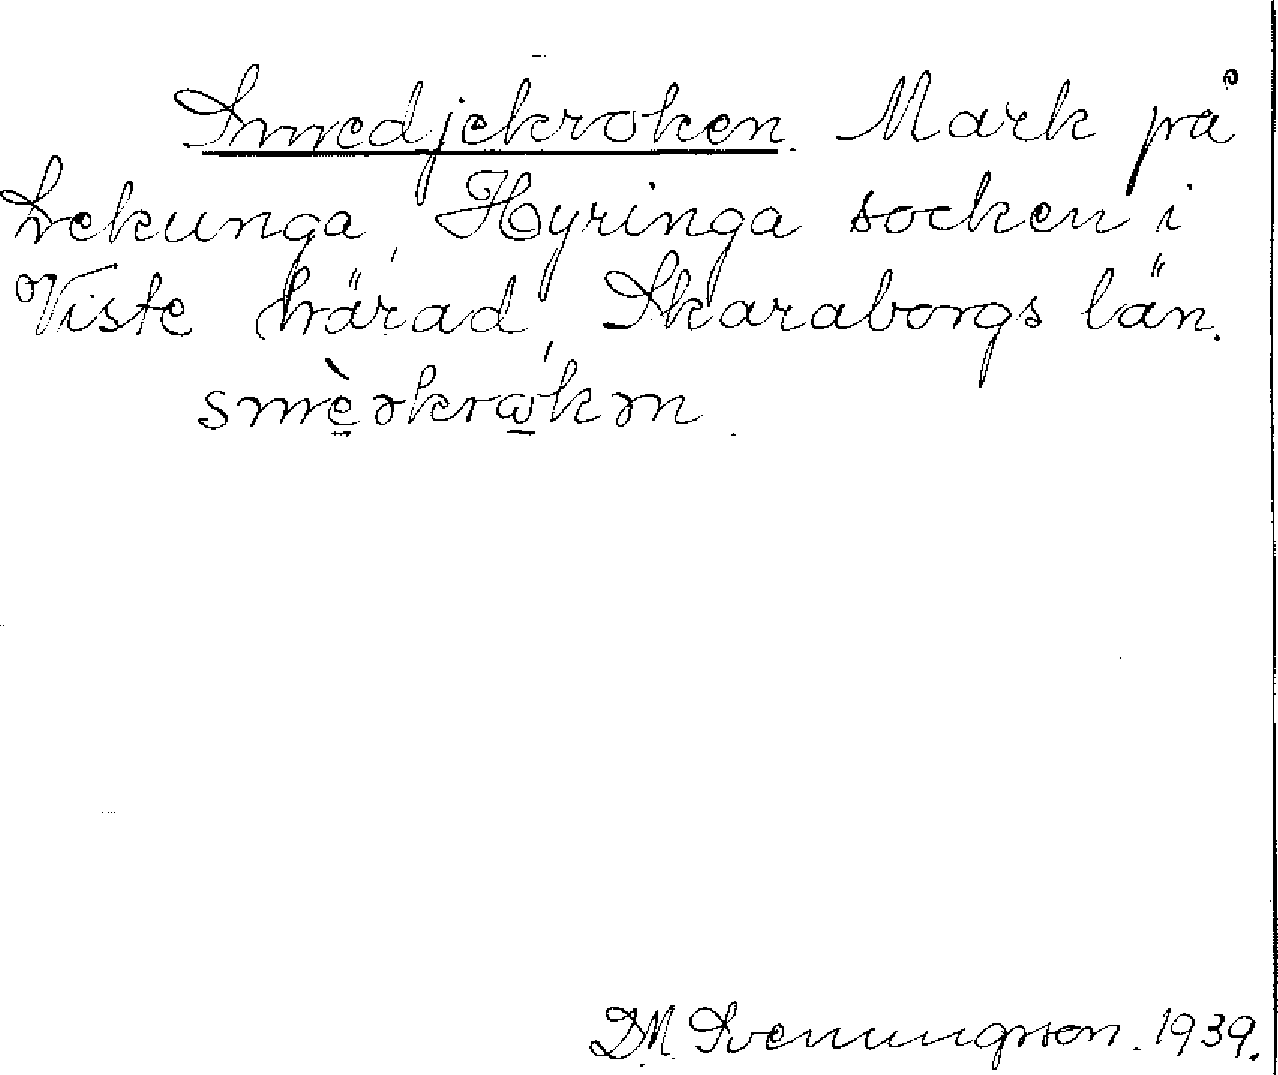 Smedjekroken. Mark på
Lekunga, Hyringa socken i
Viste härad, Skaraborgs län.
smèəkrω̲kən.
D.M. Svenungsson. 1939.